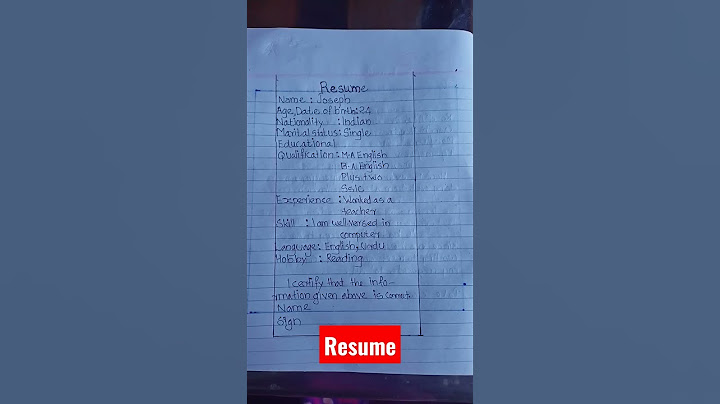 Resume
Name : Joseph
Age, Date of birth: 24
Nationality : Indian
Marital status: Single
Educational
Qualification : M.A English
B.A English
Plus two
Sslc
Experience : Worked as a
teacher
Skill : I am well versed in
computer
Language : English, Urdu
Hobby : Reading
I certify that the info-
rmation given above is correct.
Name
Sign
Resume